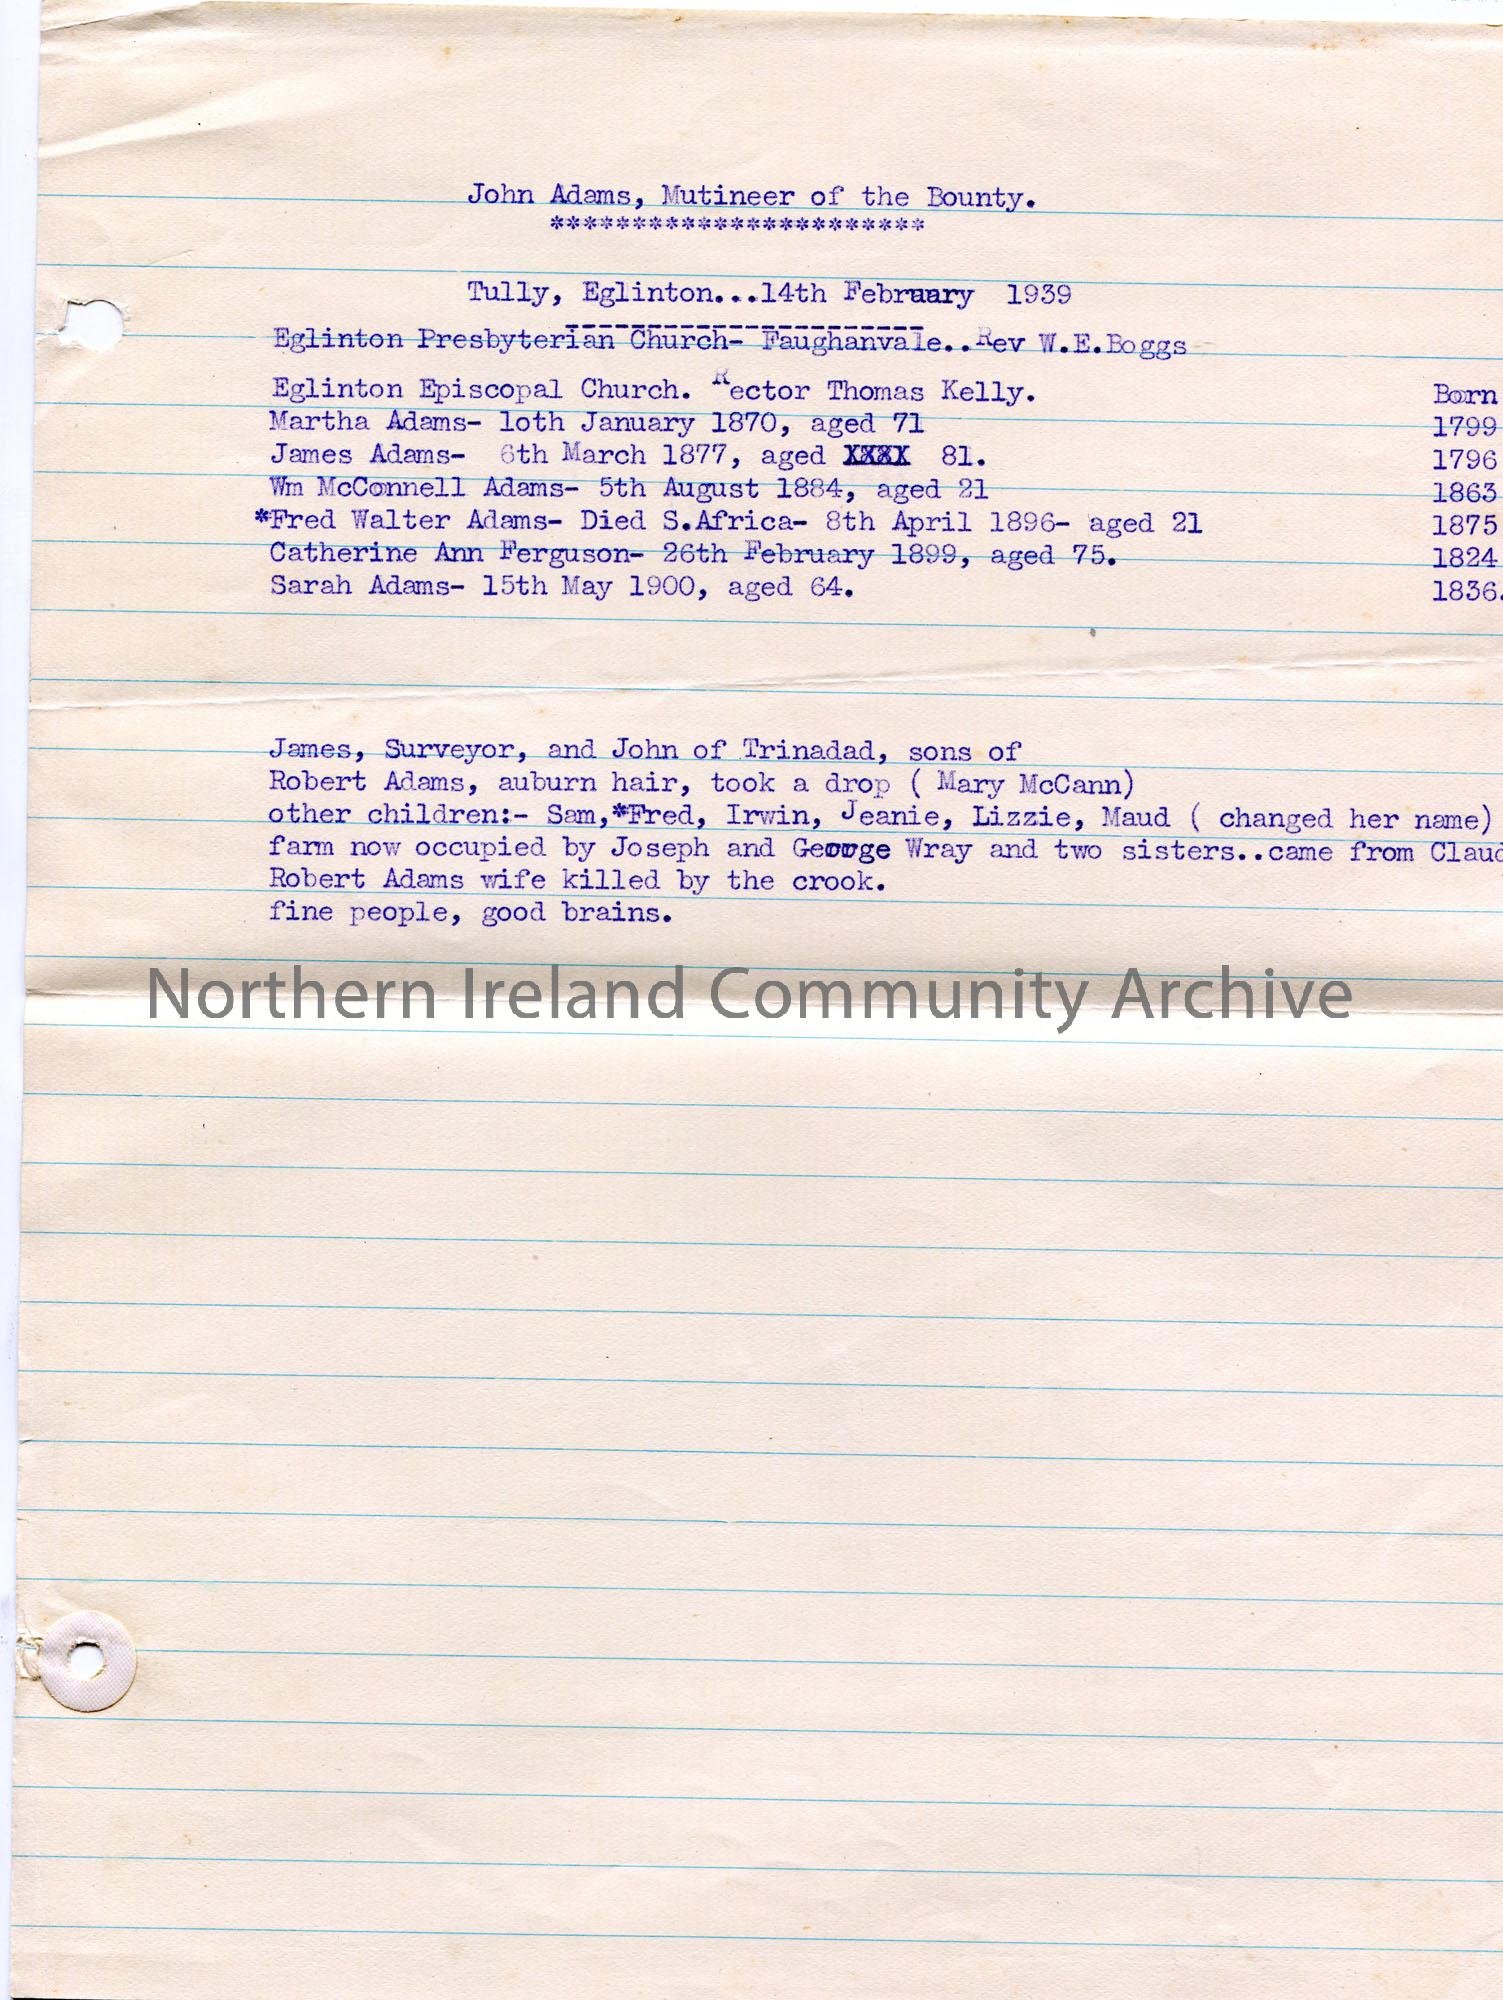 John Adams, Mutineer of the Bounty.
***********************
Tully, Eglinton...14th February 1939
----------------------
Eglinton Presbyterian Church- Faughanvale..Rev W.E.Boggs
Eglinton Episcopal Church. Rector Thomas Kelly. Born
Martha Adams- loth January 1870, aged 71 1799
James Adams- 6th March 1877, aged XXXX 81. 1796
Wm McConnell Adams- 5th August 1884, aged 21 1863
*Fred Walter Adams- Died S.Africa- 8th April 1896- aged 21 1875
Catherine Ann Ferguson- 26th February 1899, aged 75. 1824
Sarah Adams- 15th May 1900, aged 64. 1836.
James, Surveyor, and John of Trinadad, sons of
Robert Adams, auburn hair, took a drop ( Mary McCann)
other children:- Sam,*Fred, Irwin, Jeanie, Lizzie, Maud ( changed her name)
farm now occupied by Joseph and George Wray and two sisters..came from Claud
Robert Adams wife killed by the crook.
fine people, good brains.
Northern Ireland Community Archive